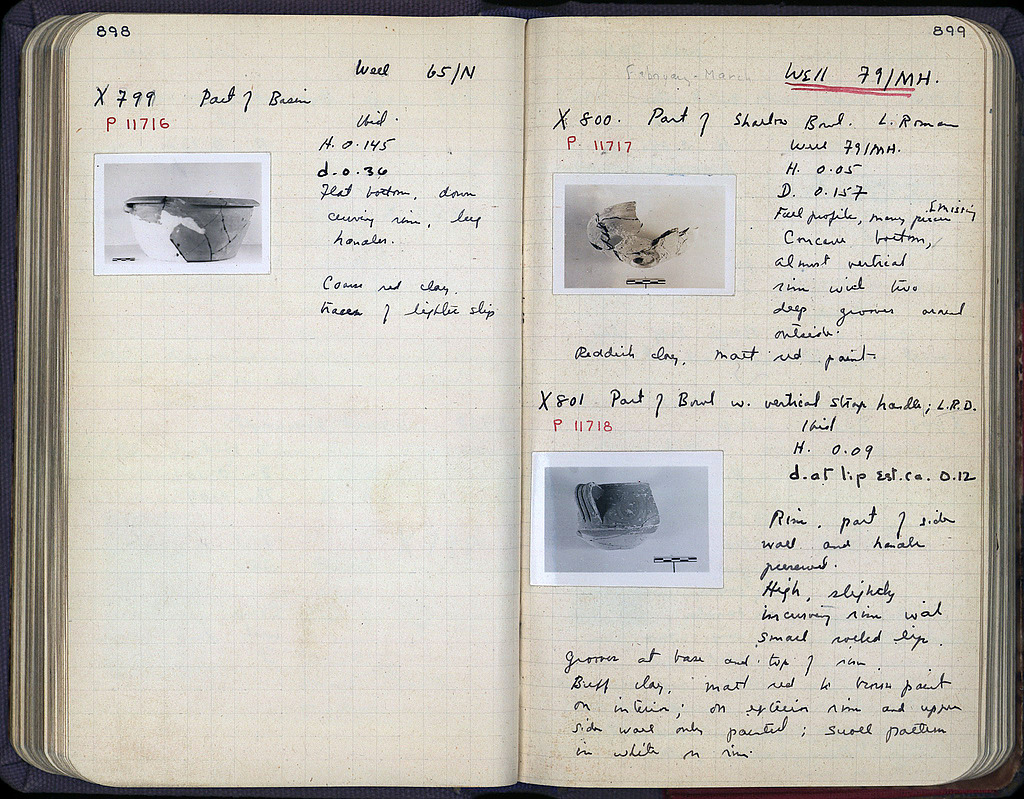 898
Well 65/N
X 799 Part of Basin
P 11716
Ibid.
H. 0.145
d. 0.36
Flat bottom, down
curving rim, lug
handles.
Coarse red clay.
traces of lighter slip
899
February - March
Well 79/MH.
X 800. Part of Shallow Bowl. L. Roman
P. 11717
Well 79/MH.
H. 0.05
D. 0.157
Full profile, many pieces missing
Concave bottom,
almost vertical
rim with two
deep grooves around
outside.
Reddish clay, matt red paint.
X 801 Part of Bowl w. vertical strap handle; L.R.D.
P 11718
Ibid
H. 0.09
d. at lip Est. ca. 0.12
Rim, part of side
wall and handle
preserved.
High, slightly
incurving rim with
small rolled lip.
Grooves at base and top of rim.
Buff clay, matt red to brown paint
on interior; on exterior rim and upper
side wall only painted; scroll pattern
in white on rim.